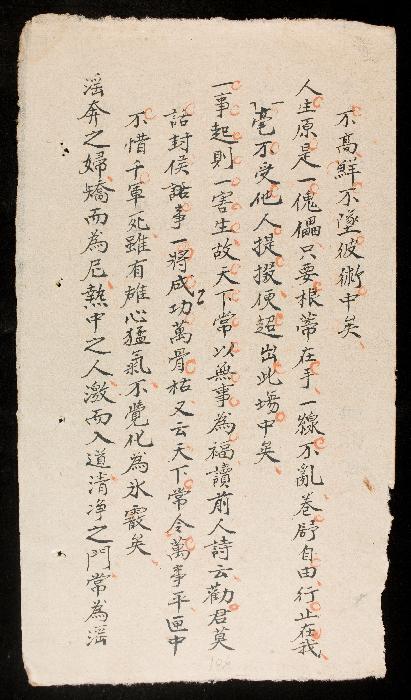 不高鮮不墜彼術中矣
人生原是一傀儡只要根蒂在手一線不亂卷舒自由行止在我
一毫不受他人提掇便超出此場中矣
一事起則一害生故天下常以無事為福讀前人詩云勸君莫
話封侯話事一將成功萬骨枯又云天下常令萬事平匣中
不惜千軍死雖有雄心猛氣不覺化為氷霰矣
滛奔之婦矯而為尼熱中之人激而入道清净之門常為滛